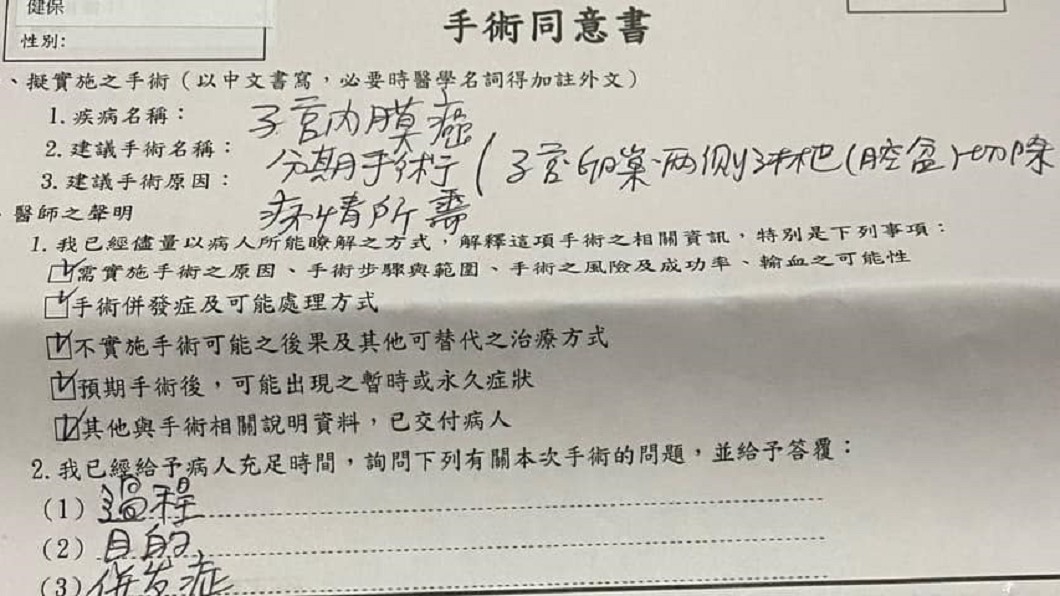 健保
性別:
手術同意書
、擬實施之手術(以中文書寫,必要時醫學名詞得加註外文)
1.疾病名稱: 子宮內膜癌
2.建議手術名稱: 分期手術(子宮卵巢、兩側淋巴(腔盆)切除
3.建議手術原因: 病情所需
醫師之聲明
1.我已經儘量以病人所能瞭解之方式,解釋這項手術之相關資訊,特別是下列事項:
☑需實施手術之原因、手術步驟與範圍、手術之風險及成功率、輸血之可能性
☑手術併發症及可能處理方式
☑不實施手術可能之後果及其他可替代之治療方式
☑預期手術後,可能出現之暫時或永久症狀
☑其他與手術相關說明資料,已交付病人
2.我已經給予病人充足時間,詢問下列有關本次手術的問題,並給予答覆:
(1)過程
(2)目的
(3)併发症